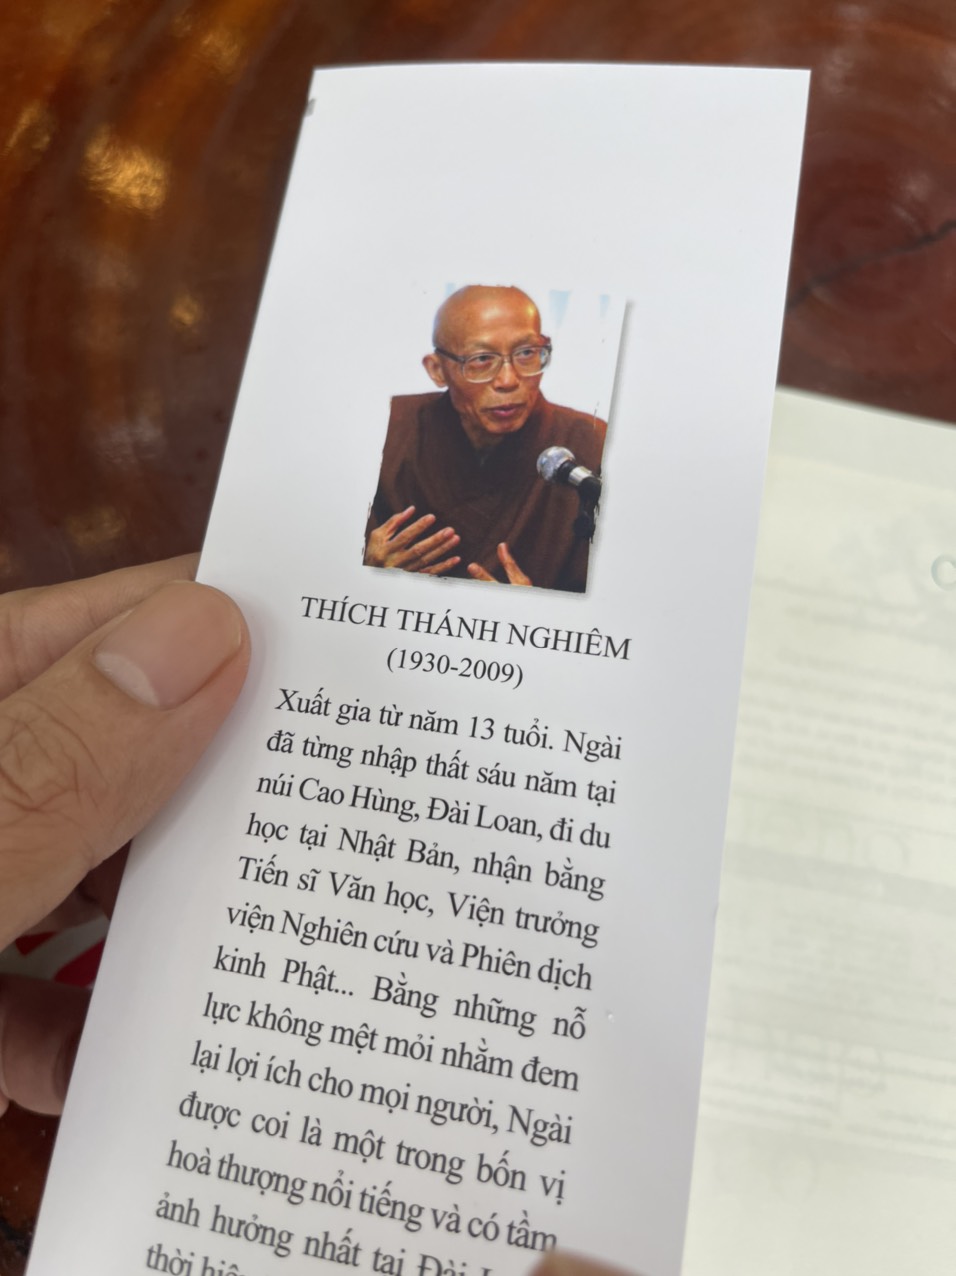 THÍCH THÁNH NGHIÊM
(1930-2009)
Xuất gia từ năm 13 tuổi. Ngài
đã từng nhập thất sáu năm tại
núi Cao Hùng, Đài Loan, đi du
học tại Nhật Bản, nhận bằng
Tiến sĩ Văn học, Viện trưởng
viện Nghiên cứu và Phiên dịch
kinh Phật... Bằng những nỗ
lực không mệt mỏi nhằm đem
lại lợi ích cho mọi người, Ngài
được coi là một trong bốn vị
hoà thượng nổi tiếng và có tầm
ảnh hưởng nhất tại Đài
thời